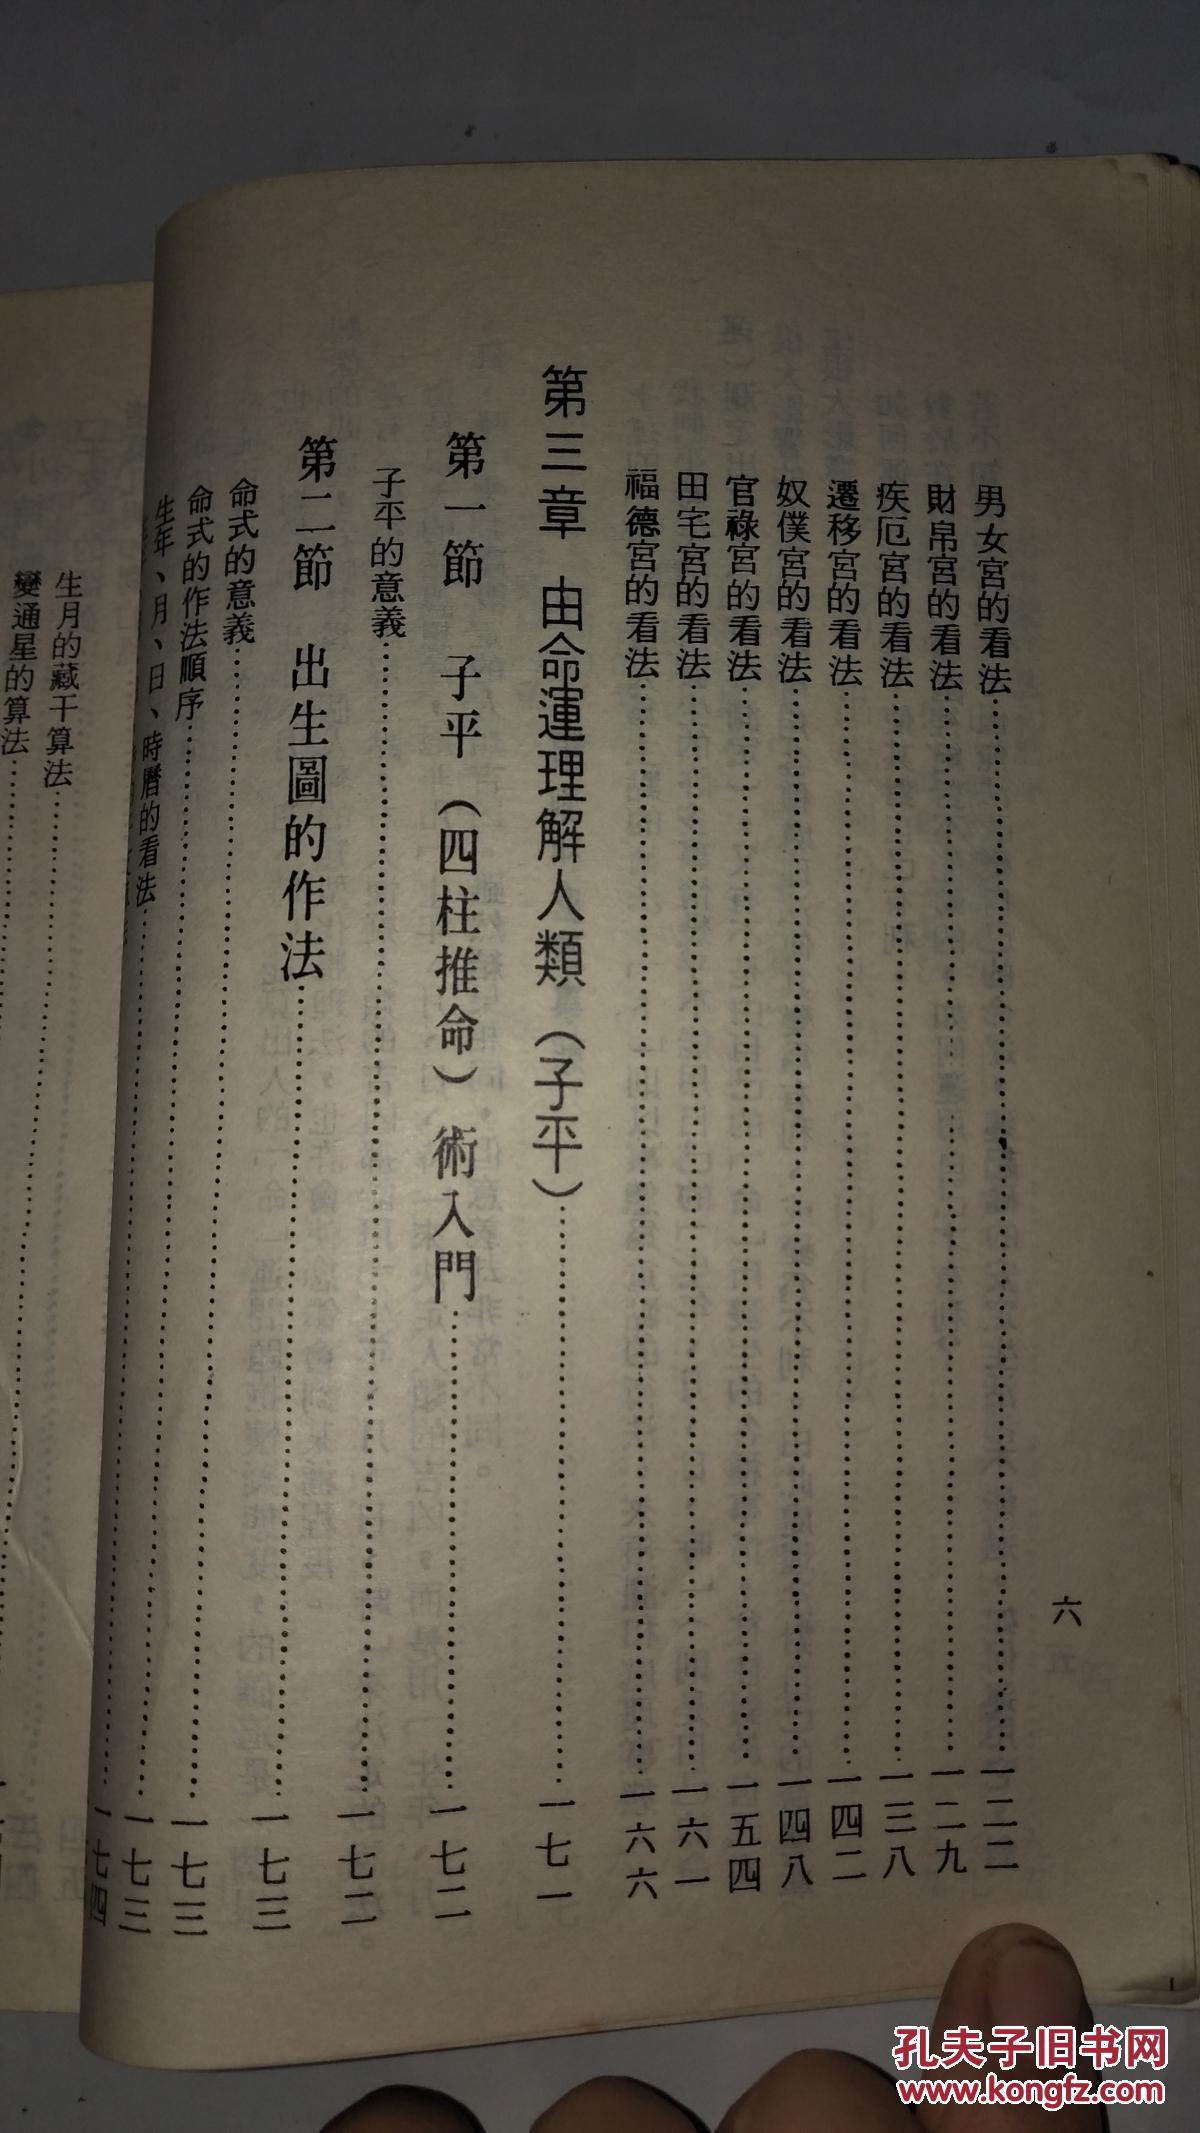 六
男女宮的看法……一二二
財帛宮的看法……一二九
疾厄宮的看法……一三八
遷移宮的看法……一四二
奴僕宮的看法……一四八
官祿宮的看法……一五四
田宅宮的看法……一六一
福德宮的看法……一六六
第三章 由命運理解人類(子平)……一七一
第一節 子平(四柱推命)術入門……一七二
子平的意義……一七二
第二節 出生圖的作法……一七三
命式的意義……一七三
命式的作法順序……一七三
生年、月、日、時曆的看法……一七四
生月的藏干算法
變通星的算法
孔夫子旧书网
www.kongfz.com